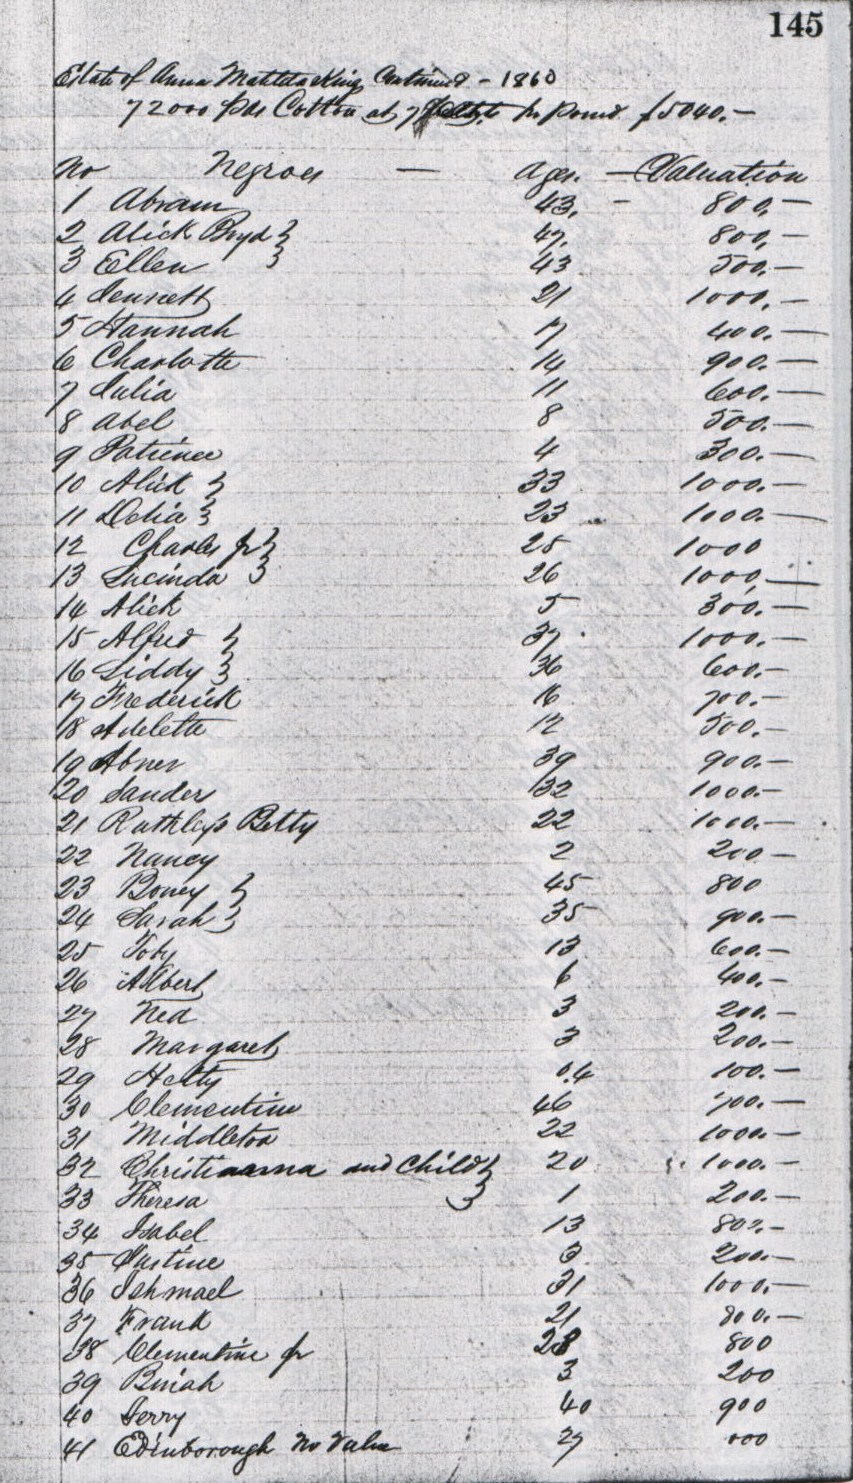 145
Estate of Anna Matilda King Continued - 1860
72000 pds Cotton at 7 per pound $5040.-
No Negroes — Ages. — Valuation
1 Abram 43. - 800.-
2 Alick Boyd } 47. 800.-
3 Ellen } 43 500.-
4 Jennett 21 1000.-
5 Hannah 17 400.-
6 Charlotte 14 900.-
7 Julia 11 600.-
8 Abel 8 500.-
9 Patience 4 300.-
10 Alick } 33 1000.-
11 Delia } 23 1000.-
12 Charles Jr } 25 1000
13 Lucinda } 26 1000.-
14 Alick 5 300.-
15 Alfred } 37 1000.-
16 Liddy } 36 600.-
17 Frederick 16 700.-
18 Adelette 12 500.-
19 Abner 39 900.-
20 Sanders 32 1000.-
21 Ruthley's Betty 22 1000.-
22 Nancy 2 200.-
23 Boney } 45 800
24 Sarah } 35 900.-
25 Toby 13 600.-
26 Albert 6 400.-
27 Ned 3 200.-
28 Margaret 3 200.-
29 Hetty 0.4 100.-
30 Clementine 46 700.-
31 Middleton 22 1000.-
32 Christiaanna and Child } 20 1000.-
33 Theresa } 1 200.-
34 Isabel 13 800.-
35 Justine 3 200.-
36 Ishmael 31 1000.-
37 Frank 21 800.-
38 Clementine Jr 28 800
39 Binah 3 200
40 Jerry 40 900
41 Edinborough No Value 27 000